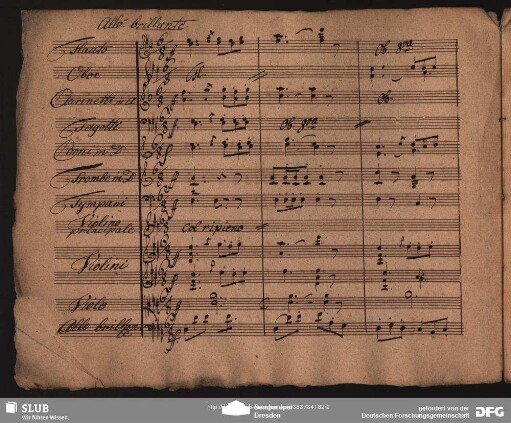 Allo brillante
Flauto
Ob. 8va
Oboe
Fl.
Clarinette in A
Ob.
Fagotti
Ob. 8va
Corni in D
Trombe in D
Tympani
Violino
principale
Col ripieno
Violini
Viole
Allo brillan
SLUB
Wir führen Wissen.
Dresden
gefördert von der
Deutschen Forschungsgemeinschaft
DFG